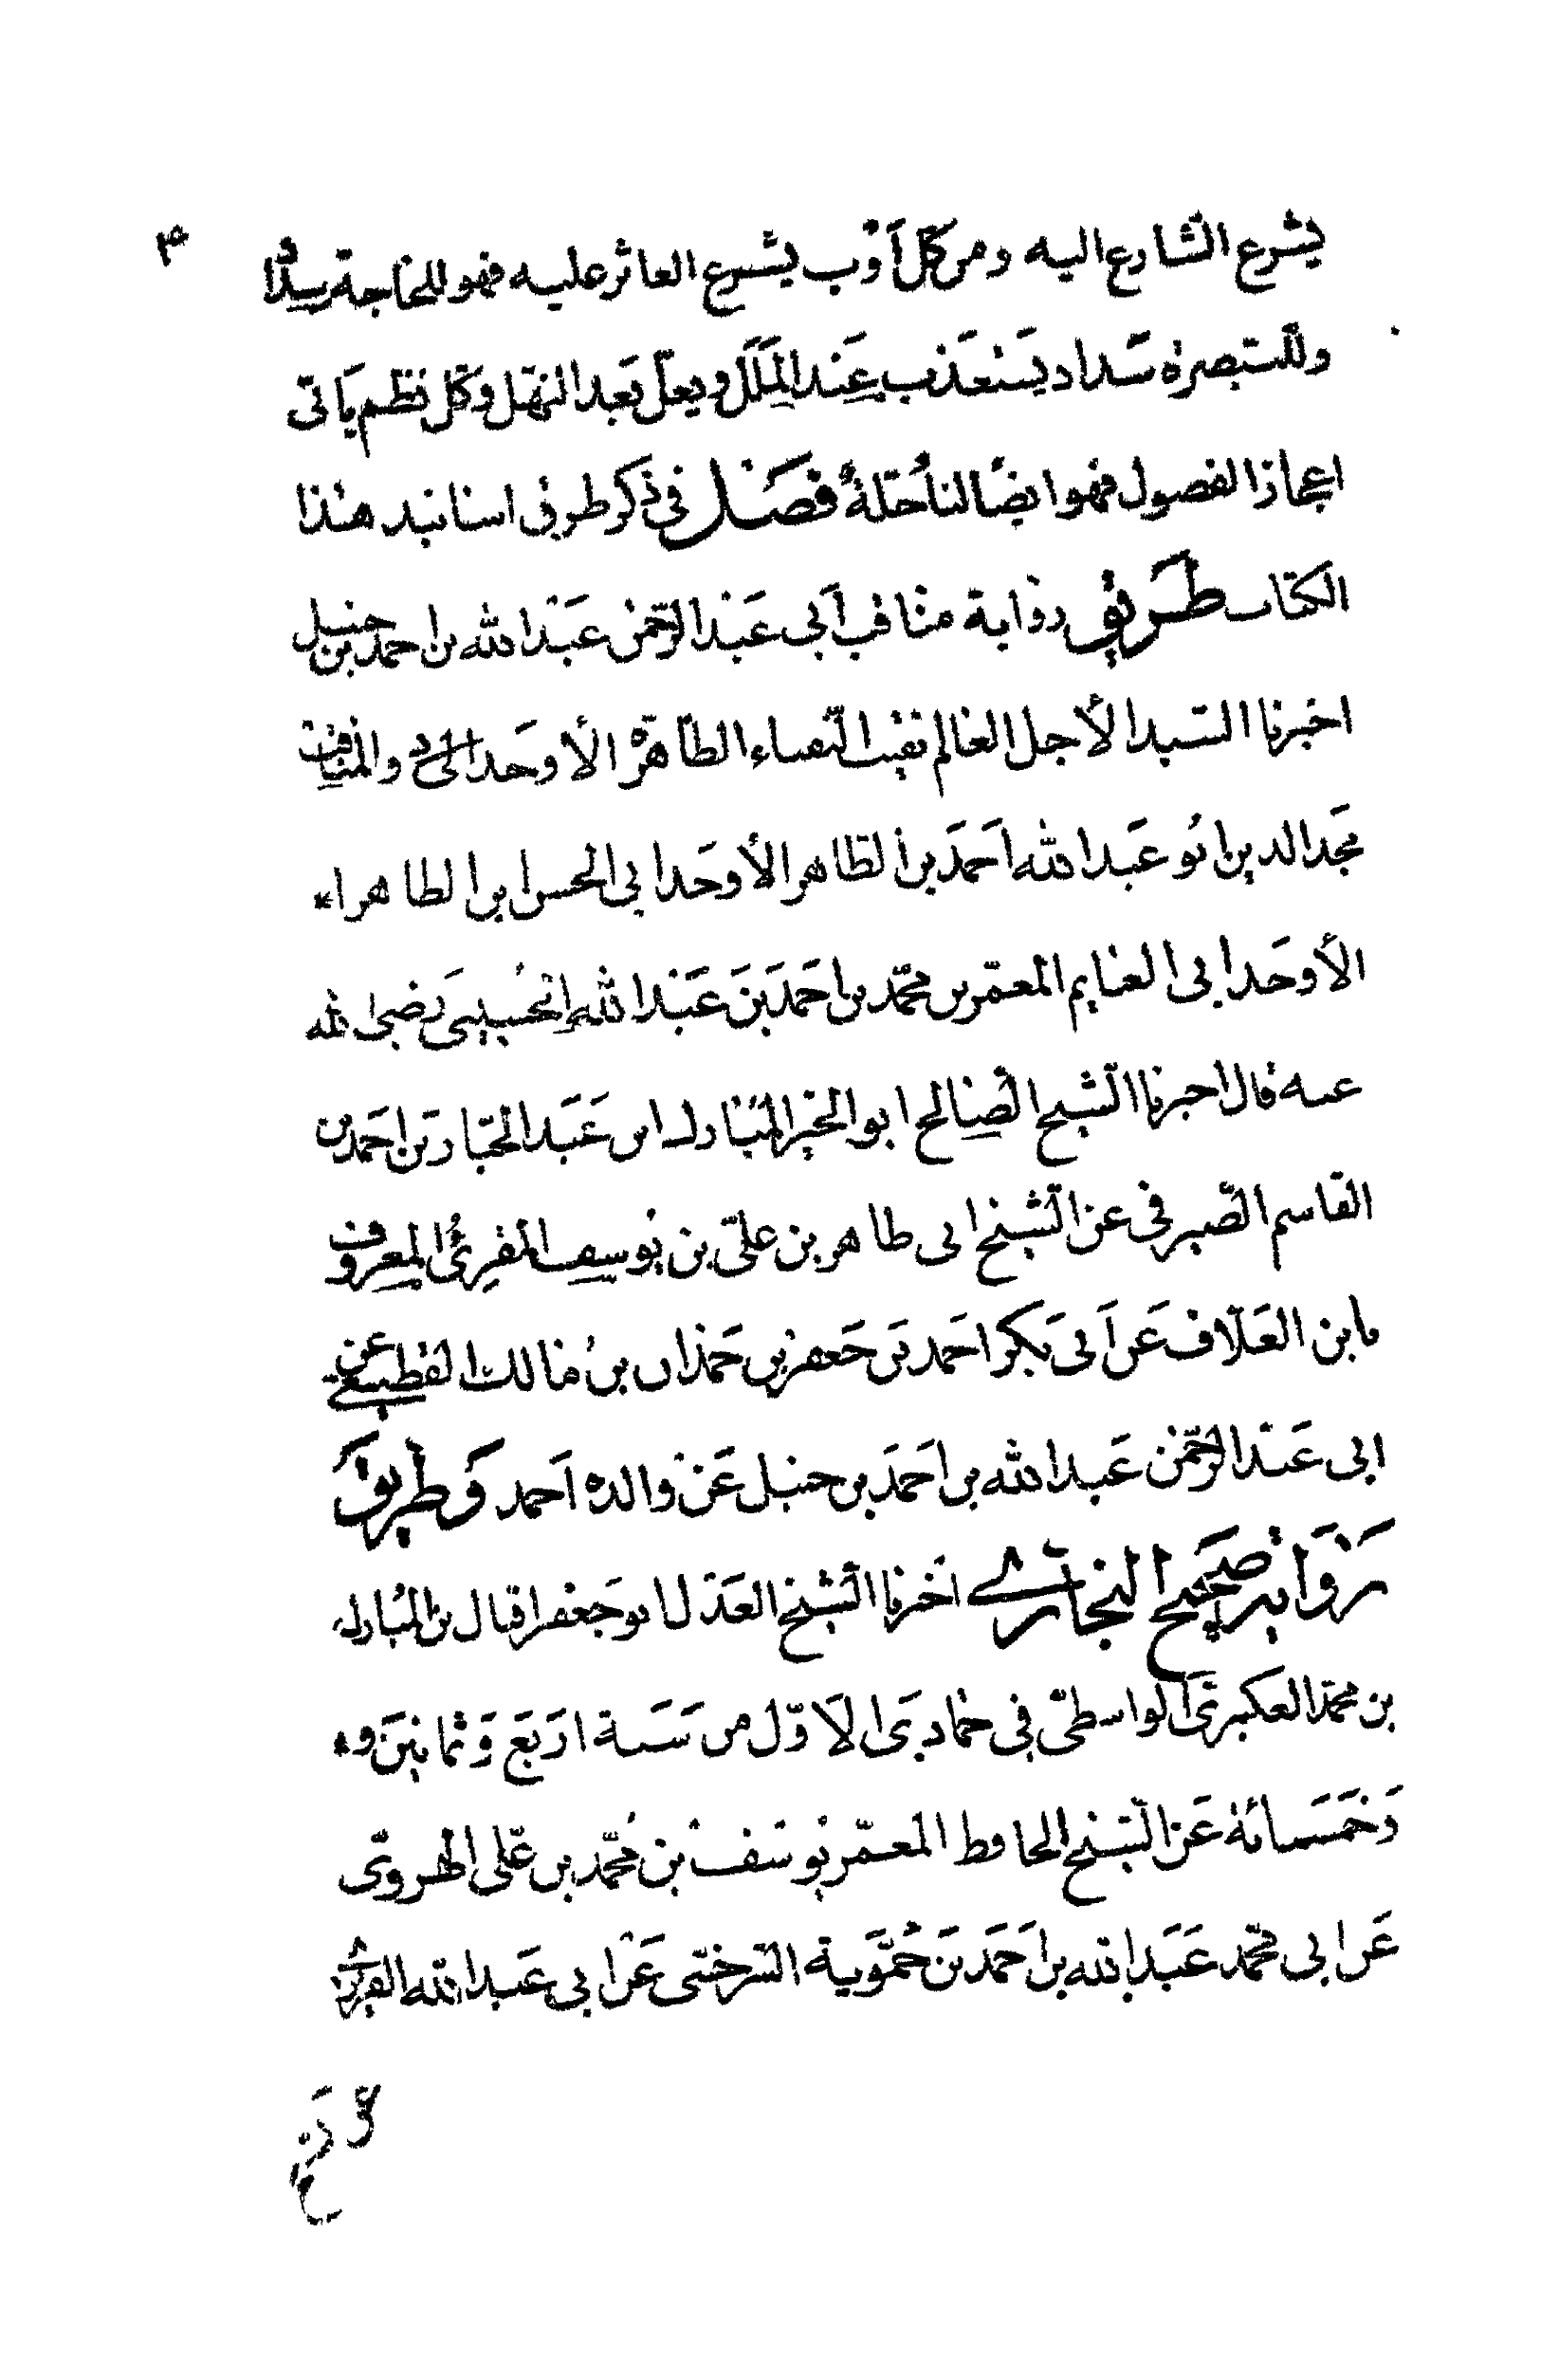 ٣
يشرع الشارع اليه ومن كل أوب يشرع العاثر عليه فهو للمحاجة رسدا
وللمستبصر سداد يستعذب عند الملل ويعل بعد النهل وكل نظم ياتى
اعجاز الفصول فهو ايضا لنا حلة فصل في ذكر طرق اسانيد هذا
الكتاب طريق رواية مناقب أبى عبد الرحمن عبد الله بن احمد بن حنبل
اخبرنا السيد الأجل العالم نقيب النقباء الطاهر الأوحد والمناقب
مجد الدين ابو عبد الله أحمد بن الطاهر الأوحد ابى الحسن ابن الطاهر
الأوحد ابى الغنايم المعمر بن محمد بن احمد بن عبد الله الحسينى رضى الله
عنه قال اخبرنا الشيخ الصالح ابو الخير المبارك ابن عبد الجبار بن احمد بن
القاسم الصيرفى عن الشيخ ابى طاهر بن على بن يوسف المقرئ المعروف
بابن العلاف عن أبى بكر احمد بن جعفر بن حمدان بن مالك القطيعى عن
ابى عبد الرحمن عبد الله بن احمد بن حنبل عن والده أحمد وطريق
رواية صحيح البخارى أخبرنا الشيخ العدل ابو جعفر اقبال بن المبارك
بن محمد العكبرى الواسطى فى جمادى الاول من سنة اربع وثمانين
وخمسمائة عن الشيخ الحافظ المعمر يوسف بن محمد بن على الهروى
عن ابى محمد عبد الله بن احمد بن حموية السرخسى عن ابى عبد الله الفربرى